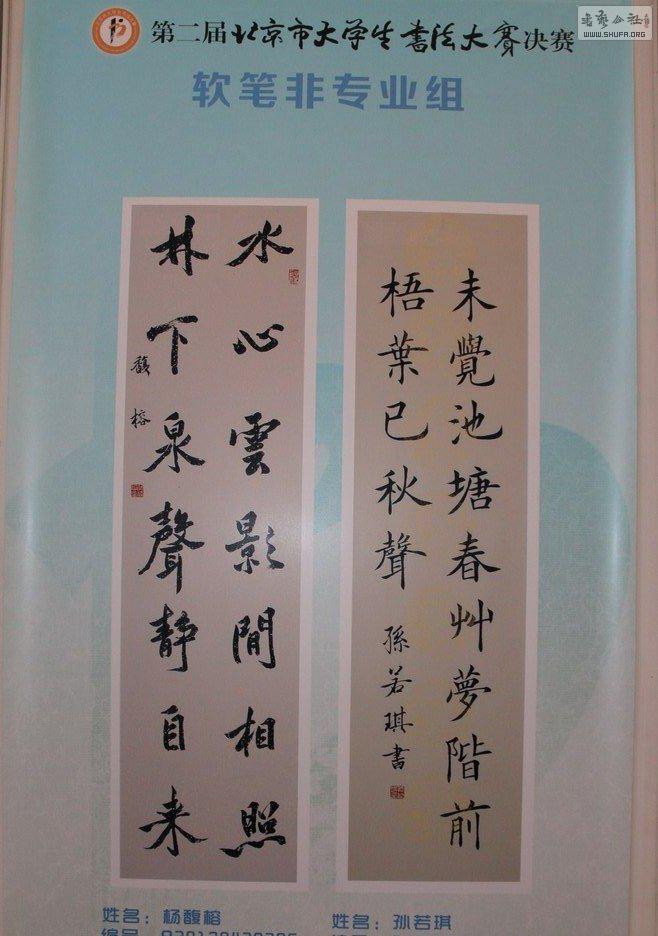 書藝公社
WWW.SHUFA.ORG
第二届北京市大学生書法大賽决赛
软笔非专业组
水心雲影閒相照
林下泉聲静自来
馥榕
未覺池塘春艸夢階前
梧葉已秋聲
孫若琪書
姓名：杨馥榕
姓名：孙若琪